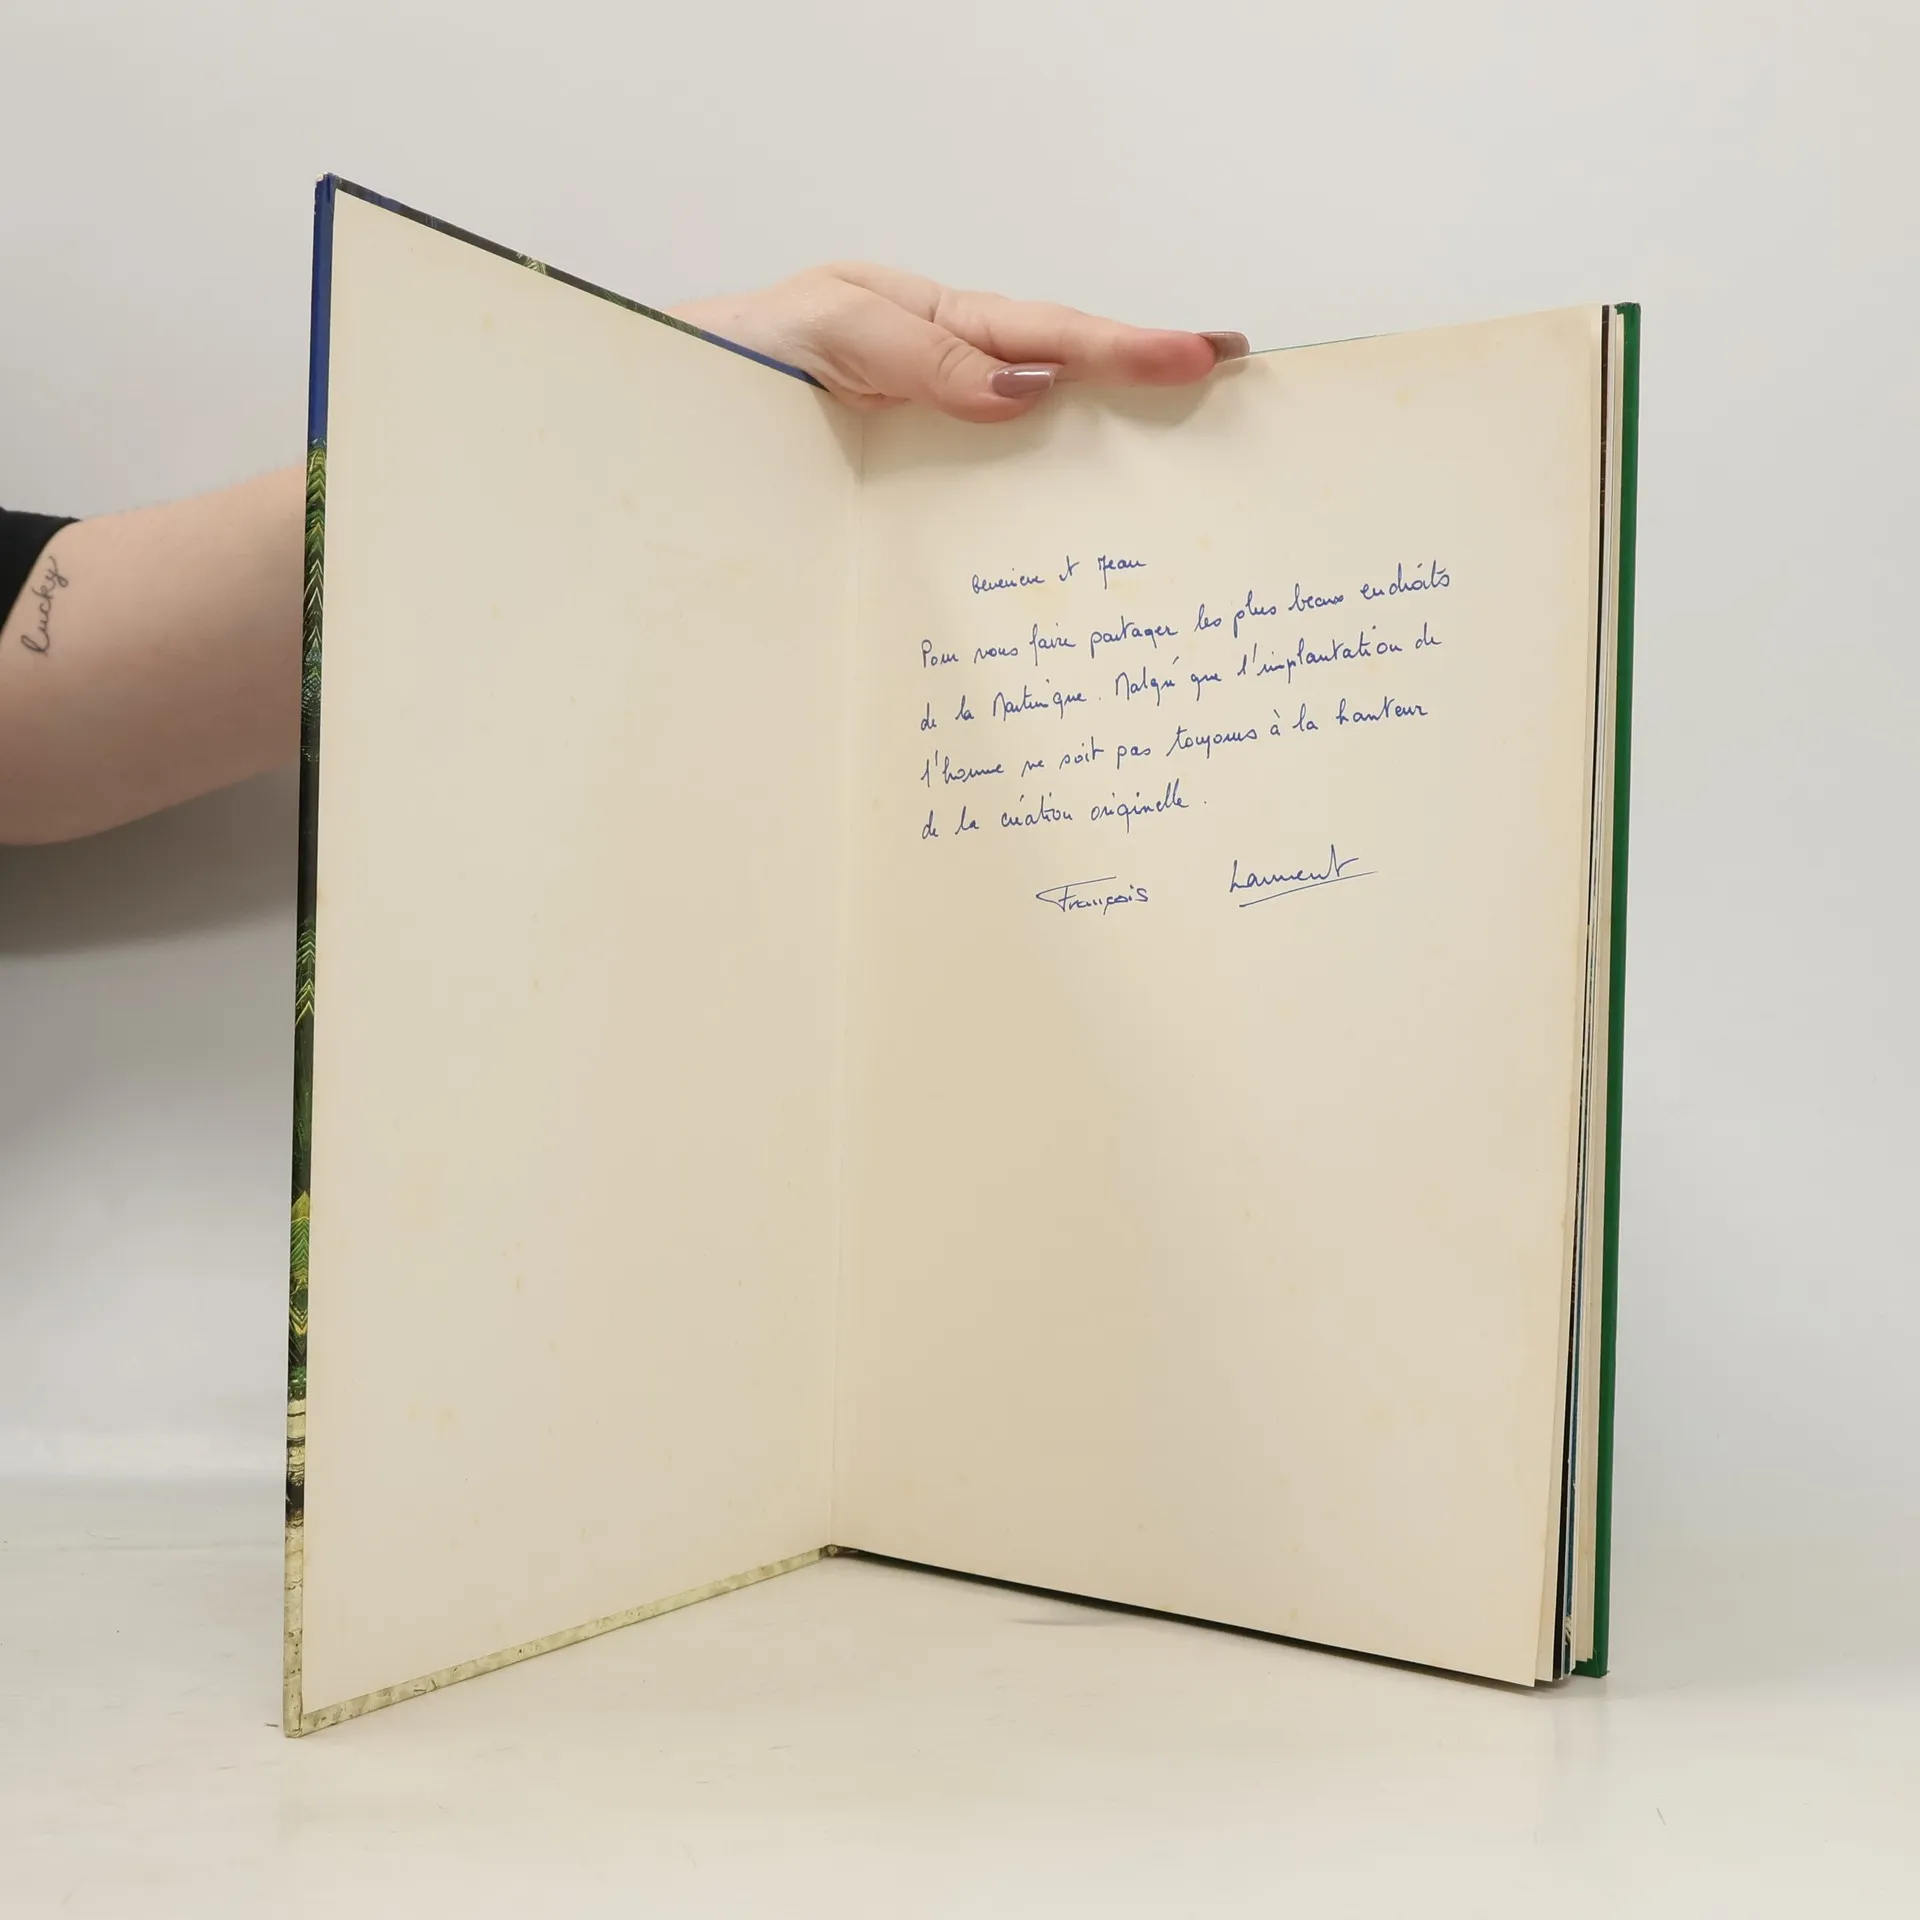 lucky
Genevieve et Jean
Pour vous faire partager les plus beaux endroits
de la Martinique. Malgré que l'implantation de
l'homme ne soit pas toujours à la hauteur
de la création originelle.
François Laurent